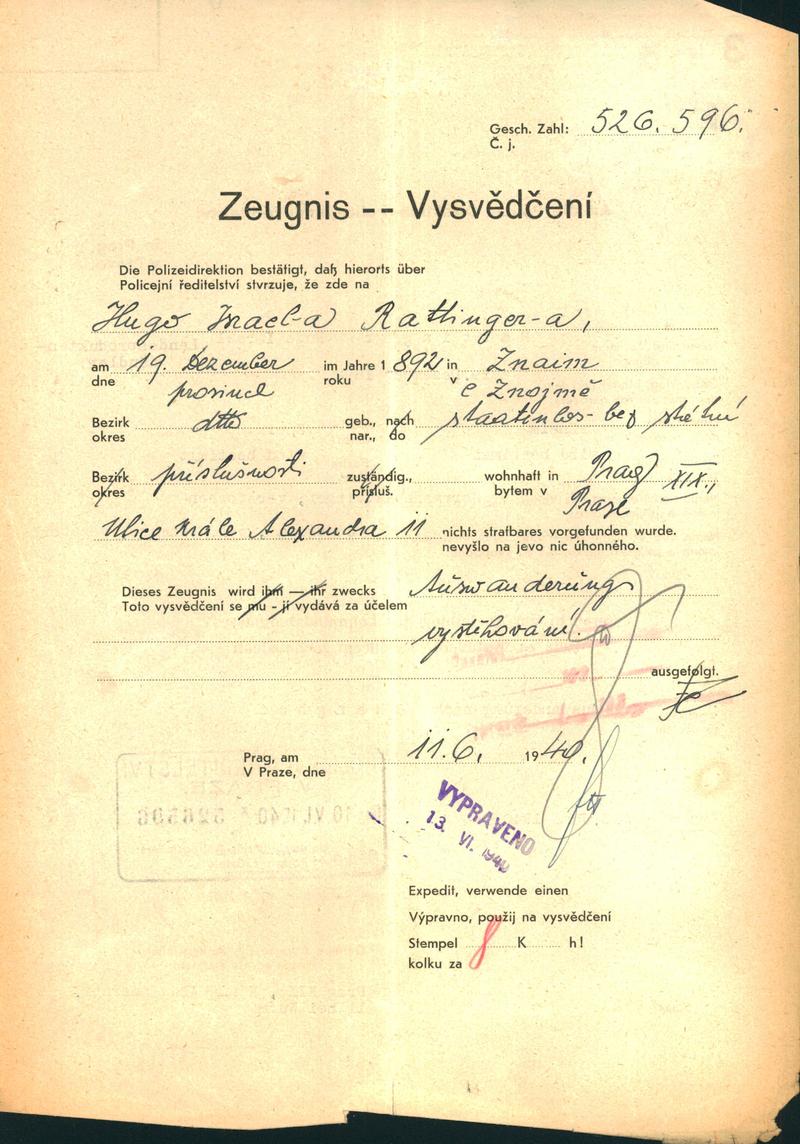 Gesch. Zahl: 526.596.
Č. j.
Zeugnis -- Vysvědčení
Die Polizeidirektion bestätigt, daß hierorts über
Policejní ředitelství stvrzuje, že zde na
Hugo Israel-a Rattinger-a,
am 19. Dezember im Jahre 1892 in Znaim
dne prosince roku v e Znojmě
Bezirk dtto geb., nach staatenlos - bez státní
okres nar., do
Bezirk příslušnosti zuständig., wohnhaft in Prag XIX.,
okres přísluš. bytem v Praze
Ulice krále Alexandra 11 nichts strafbares vorgefunden wurde.
nevyšlo na jevo nic úhonného.
Dieses Zeugnis wird ihm — ihr zwecks Auswanderung
Toto vysvědčení se mu - jí vydává za účelem
vystěhování.
ausgefolgt.
Prag, am 11.6. 1940.
V Praze, dne
VYPRAVENO
13. VI. 1940
Expedit, verwende einen
Výpravno, použij na vysvědčení
Stempel 8 K h!
kolku za